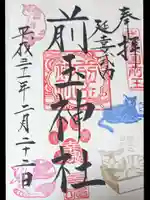 奉拝
延喜式内
前玉神社
平成三十一年二月二十二日